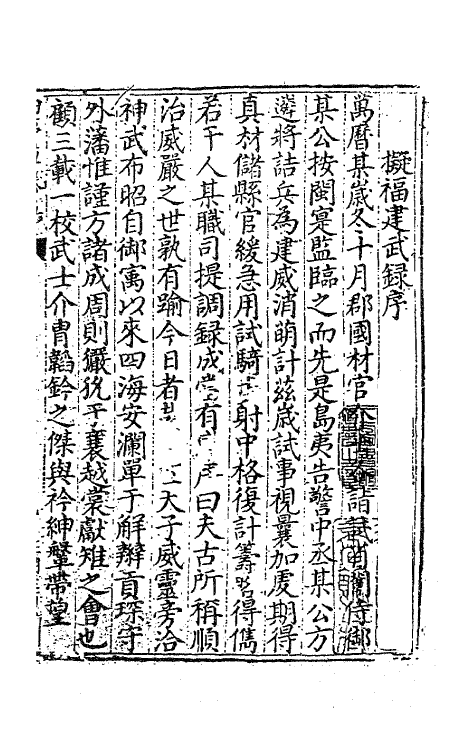 擬福建武録序
萬曆某歳冬十月郡國材官諸武侍御
某公按閩寔監臨之而先是島夷告警中丞某公方
遴將詰兵為建威消萌計兹歳試事視曩加虔期得
真材儲縣官緩急用試騎射中格復計籌畧得儁
若干人某職司提調録成當有曰夫古所稱順
治威嚴之世孰有踰今日者天子威靈旁洽
神武布昭自御寓以來四海安瀾單于解辮貢琛守
外藩惟謹方諸成周則玁狁平襄越裳獻雉之會也
顧三載一校武士介胄韜鈐之傑與衿紳鞶帶望